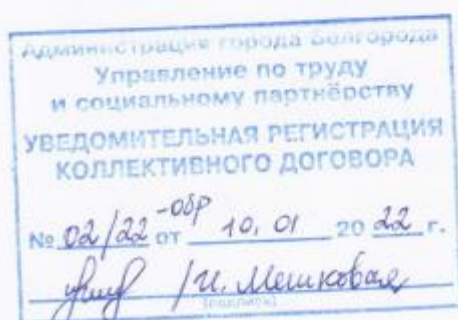 Администрация города Белгорода
Управление по труду
и социальному партнёрству
УВЕДОМИТЕЛЬНАЯ РЕГИСТРАЦИЯ
КОЛЛЕКТИВНОГО ДОГОВОРА
№ 02/22-обр от 10.01 2022 г.
/И. Мешковая
(подпись)